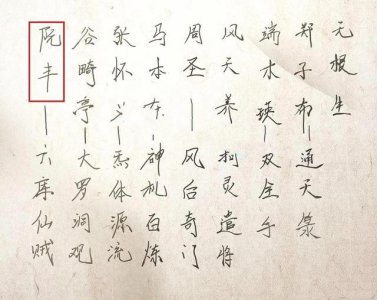 无根生
郑子布—通天箓
端木瑛—双全手
风天养 拘灵遣将
周圣—风后奇门
马本在—神机百炼
张怀义—炁体源流
谷畸亭—大罗洞观
阮丰—六库仙贼